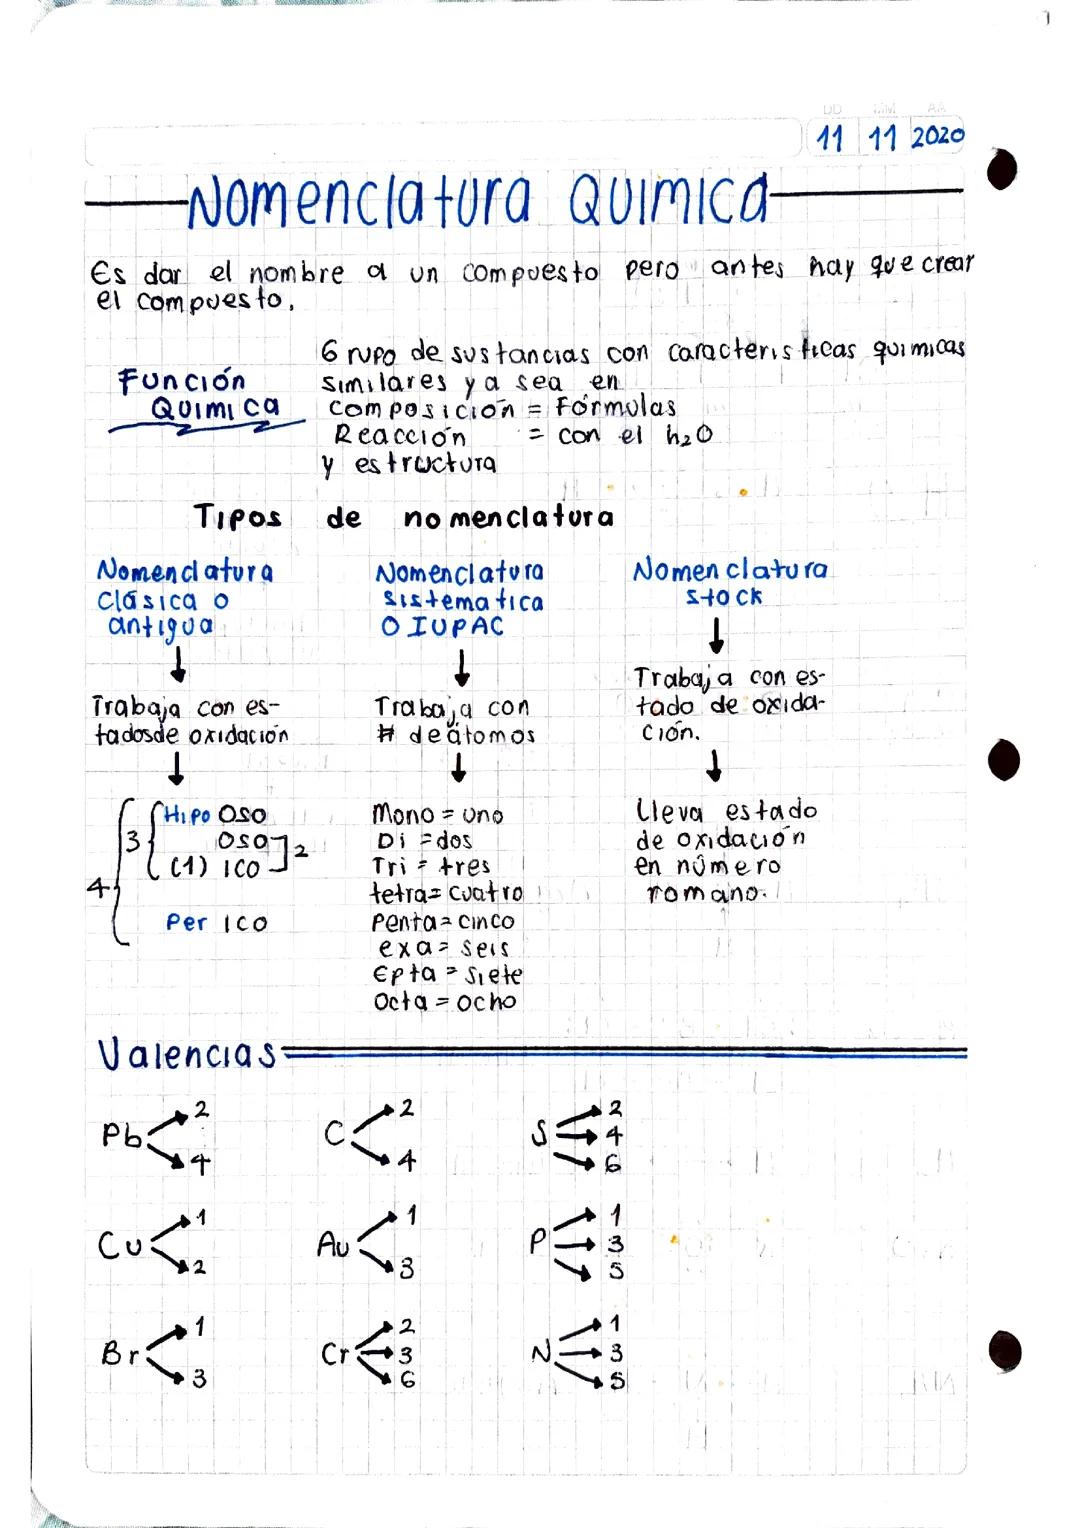 DD MM AA
11 11 2020
Nomenclatura Quimica
Es dar el nombre a un compuesto pero antes hay que crear
el compuesto.
Función
Quimica
Grupo de sustancias con caracteristicas quimicas
similares ya sea en
composición = Fórmulas
Reacción = con el h₂O
y estructura
Tipos de nomenclatura
Nomenclatura
Clásica o
antigua
↓
Trabaja con es-
tadosde oxidación
↓
4 { 3 { Hipo oso
oso ] 2
(1) ico
Per ico
Nomenclatura
sistematica
O IUPAC
↓
Trabaja con
# deátomos
↓
Mono = uno
Di = dos
Tri = tres
tetra = cuatro
Penta = cinco
exa = seis
Epta = siete
Octa = ocho
Nomenclatura
stock
↓
Trabaja con es-
tado de oxida-
ción.
↓
Lleva estado
de oxidación
en número
romano.
Valencias
Pb 2 4
C 2 4
S 2 4 6
Cu 1 2
Au 1 3
P 1 3 5
Br 1 3
Cr 2 3 6
N 1 3 5